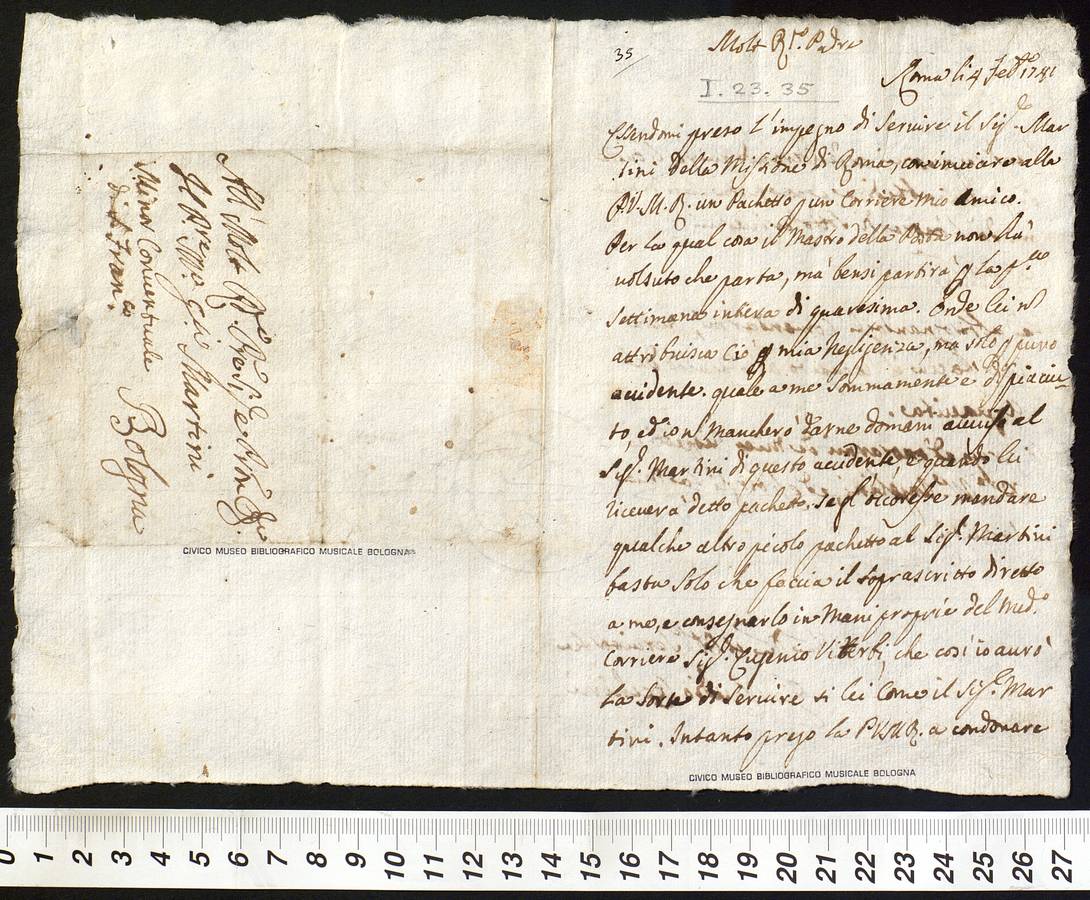 All Molt R.do P.re Sig.re e P.ron
Il R. P.re Martini
Minor Conventuale
di S. Fran.co
Bologna
CIVICO MUSEO BIBLIOGRAFICO MUSICALE BOLOGNA
35
Molt R.do Padre
I. 23. 35
Roma li 4 Feb.o 1741
Essendomi preso l'impegno di Servire il Sig.r Mar
tini della Missione di Roma, con inviare alla
P.V.M.R. un Pachetto p un Corriere Mio Amico.
Per la qual cosa il Mastro della Posta non l'à
volsuto che parta, mà bensi partirà p la p.ma
settimana intiera di quaresima. Onde lei n
attribuisca Ciò p mia Neglijenza, ma solo p puro
accidente. quale a me sommamente e dispiaciu-
to, ed io n Mancherò darne domani aviso al
Sig.r Martini di questo accidente, e quando lei
riceverà detto pachetto. se gl'occoresse mandare
qualche altro picolo pachetto al Sig.r Martini
basta Solo che faccia il soprascritto diretto
a me, e consegnarlo in Mani proprie del Med.o
Corriere Sig.r Eugenio Viterbi, che così io avrò
La Sorte di Servire si lei Come il Sig.r Mar
tini. Intanto prego la P.V.M.R. a condonare
CIVICO MUSEO BIBLIOGRAFICO MUSICALE BOLOGNA
0 1 2 3 4 5 6 7 8 9 10 11 12 13 14 15 16 17 18 19 20 21 22 23 24 25 26 27